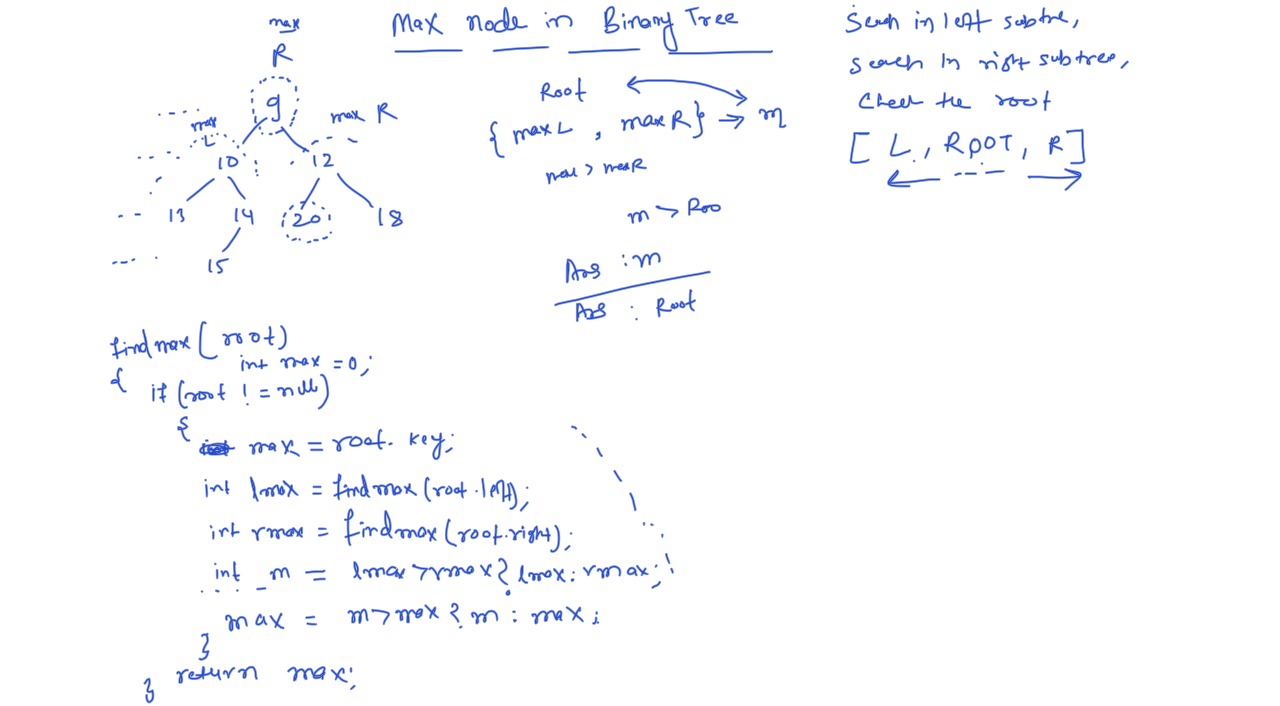 Max node in Binary Tree
max
R
9
max
L
max R
10
12
13
14
20
18
15
Root
{ maxL , maxR} → m
maxL > maxR
m > Roo
Ans : m
Ans : Root
Seach in left subtre,
seach in right subtree,
Check the root
[ L , ROOT, R ]
findmax( root)
int max = 0;
{ if (root != null)
{
max = root. key;
int lmax = findmax (root.left);
int rmax = findmax (root.right);
int m = lmax > rmax ? lmax : rmax;
max = m > max ? m : max;
}
return max;
}